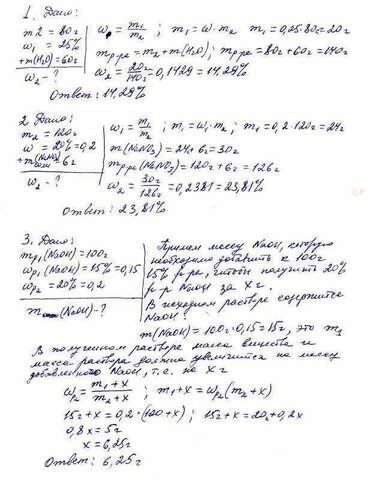 1. Дано:
m2 = 80г
ω₁ = 25%
+m(H₂O) = 60г
ω₂ - ?
ω₀ = m₁/m₂ ; m₁ = ω·m₂ ; m₁ = 0,25·80г = 20г
mр-ра = m₂ + m(H₂O); mр-ра = 80г + 60г = 140г
ω₂ = 20г/140г = 0,1429 = 14,29%
Ответ: 14,29%
2 Дано:
m₂ = 120г
ω = 20% = 0,2
+m(NaNO₃) 6г
ω₂ - ?
ω₁ = m₁/m₂ ; m₁ = ω₁·m₂ ; m₁ = 0,2·120г = 24г
m(NaNO₃) = 24 + 6г = 30г
mр-ра(NaNO₃) = 120г + 6г = 126г
ω₂ = 30г/126г = 0,2381 = 23,81%
Ответ: 23,81%
3. Дано:
mр₁(NaOH) = 100г
ωр₁(NaOH) = 15% = 0,15
ωр₂ = 20% = 0,2
m(NaOH) - ?
Примем массу NaOH, которую
необходимо добавить к 100г
15% р-ра, чтобы получить 20%
р-р NaOH за x г.
В исходном растворе содержится
NaOH:
m(NaOH) = 100г·0,15 = 15г, это m₁
В полученном растворе масса вещества и
масса раствора должна увеличится на массу
добавленного NaOH, т.е. на x г
ωр₂ = m₁ + x/m₂ + x ; m₁ + x = ωр₂(m₂ + x)
15г + x = 0,2·(100 + x) ; 15г + x = 20г + 0,2x
0,8x = 5г
x = 6,25г
Ответ: 6,25г